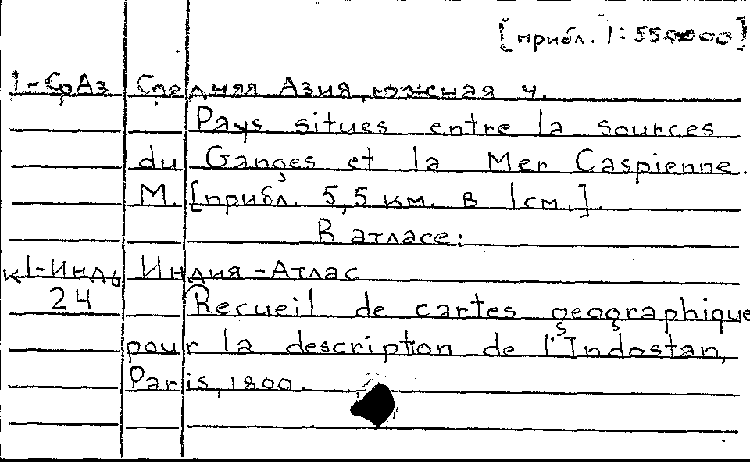 [прибл. 1:550000]
1-СрАз Средняя Азия, южная ч.
Pays situes entre la sources
du Ganges et la Mer Caspienne.
М. [прибл. 5,5 км. в 1см.].
В атласе:
к1-Инд Индия-Атлас
24 Recueil de cartes geographique
pour la description de l'Indostan,
Paris, 1800.